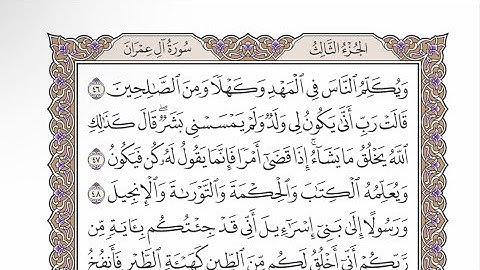 سُورَةُ آلِ عِمْرَانَ الجُزْءُ الثَّالِثُ
وَيُكَلِّمُ ٱلنَّاسَ فِي ٱلْمَهْدِ وَكَهْلًا وَمِنَ ٱلصَّٰلِحِينَ ٤٦
قَالَتْ رَبِّ أَنَّىٰ يَكُونُ لِي وَلَدٌ وَلَمْ يَمْسَسْنِي بَشَرٌۖ قَالَ كَذَٰلِكِ
ٱللَّهُ يَخْلُقُ مَا يَشَآءُۚ إِذَا قَضَىٰٓ أَمْرًا فَإِنَّمَا يَقُولُ لَهُۥ كُن فَيَكُونُ ٤٧
وَيُعَلِّمُهُ ٱلْكِتَٰبَ وَٱلْحِكْمَةَ وَٱلتَّوْرَىٰةَ وَٱلْإِنجِيلَ ٤٨
وَرَسُولًا إِلَىٰ بَنِيٓ إِسْرَٰٓءِيلَ أَنِّي قَدْ جِئْتُكُم بِـَٔايَةٍ مِّن
رَّبِّكُمْ أَنِّيٓ أَخْلُقُ لَكُم مِّنَ ٱلطِّينِ كَهَيْـَٔةِ ٱلطَّيْرِ فَأَنفُخُ